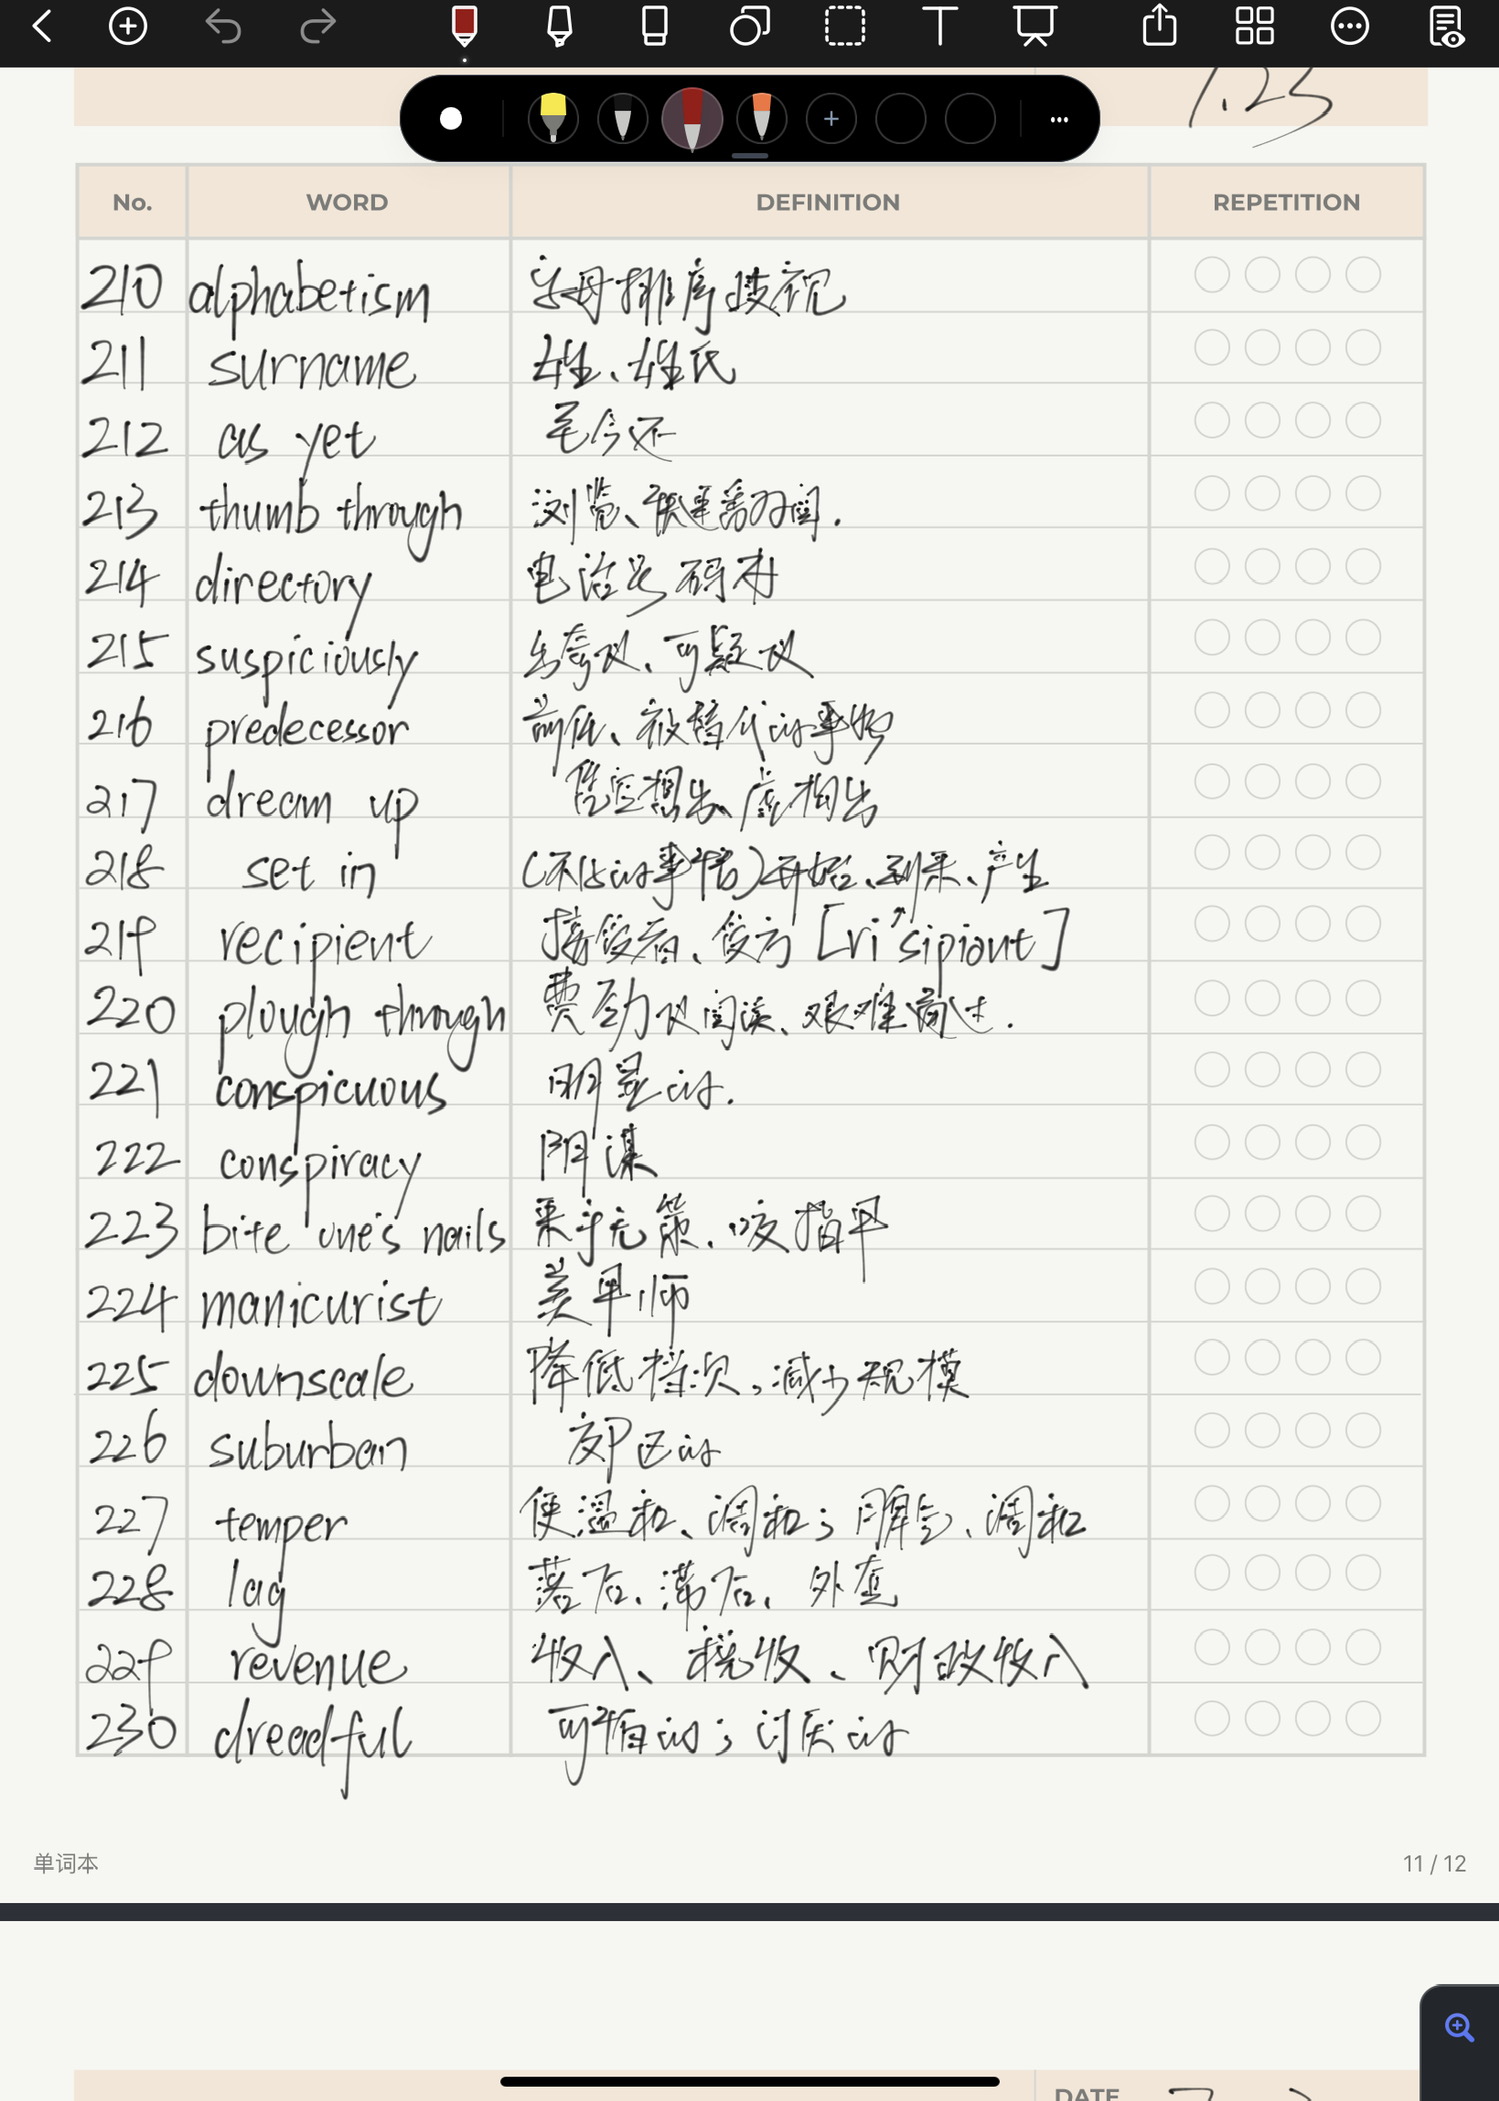 1.25
No. WORD DEFINITION REPETITION
210 alphabetism 字母排序歧视
211 surname 姓、姓氏
212 as yet 至今还
213 thumb through 浏览、快速翻阅.
214 directory 电话号码本
215 suspiciously 出奇地、可疑地
216 predecessor 前任、被替代的事物
217 dream up 凭空想出、虚构出
218 set in (不好的事情)开始、到来、产生
219 recipient 接受者、受方 [ri'sipiənt]
220 plough through 费劲地阅读、艰难通过.
221 conspicuous 明显的.
222 conspiracy 阴谋
223 bite one's nails 束手无策.咬指甲
224 manicurist 美甲师
225 downscale 降低档次,减少规模
226 suburban 郊区的
227 temper 使温和、调和;脾气、调和
228 lag 落后、滞后、外查
229 revenue 收入、税收、财政收入
230 dreadful 可怕的;讨厌的
单词本 11 / 12
DATE